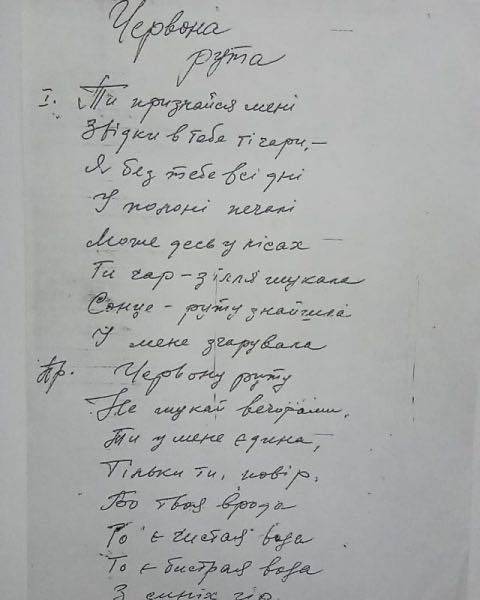 Червона
рута
I. Ти признайся мені
Звідки в тебе ті чари, –
Я без тебе всі дні
У полоні печалі
Може десь у лісах
Ти чар – зілля шукала
Сонце – руту знайшла
І мене зчарувала
Пр. Червону руту
Не шукай вечорами,
Ти у мене єдина,
Тільки ти, повір.
Бо твоя врода
То є чистая вода
То є бистрая вода
З синіх гір.